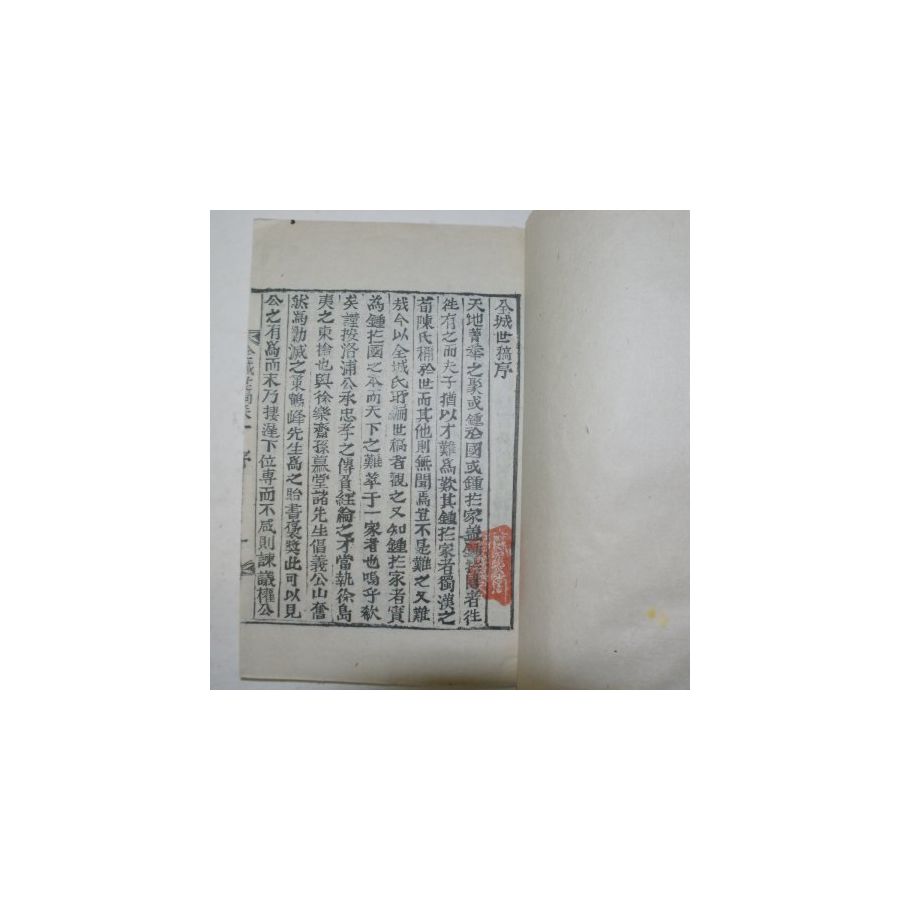 全城世稿序
天地菁華之聚或鍾於國或鍾扵家盖鍾扵者徃
徃有之而夫子猶以才難爲歎其鍾扵家者獨漢之
荀陳氏稱於世而其他則無聞焉豈不是難之又難
哉今以全城氏所編世稿者觀之又知鍾扵家者實
為鍾扵國之本而天下之難萃于一家者也嗚乎欷
矣謹按洛浦公承忠孝之傳負經綸之才當執徐島
夷之東搶也與徐樂齋孫慕堂諸先生倡義公山奮
然為勦滅之策鶴峰先生爲之貽書褒奬此可以見
公之有為而末乃捿遅下位専而不咸則諫議權公